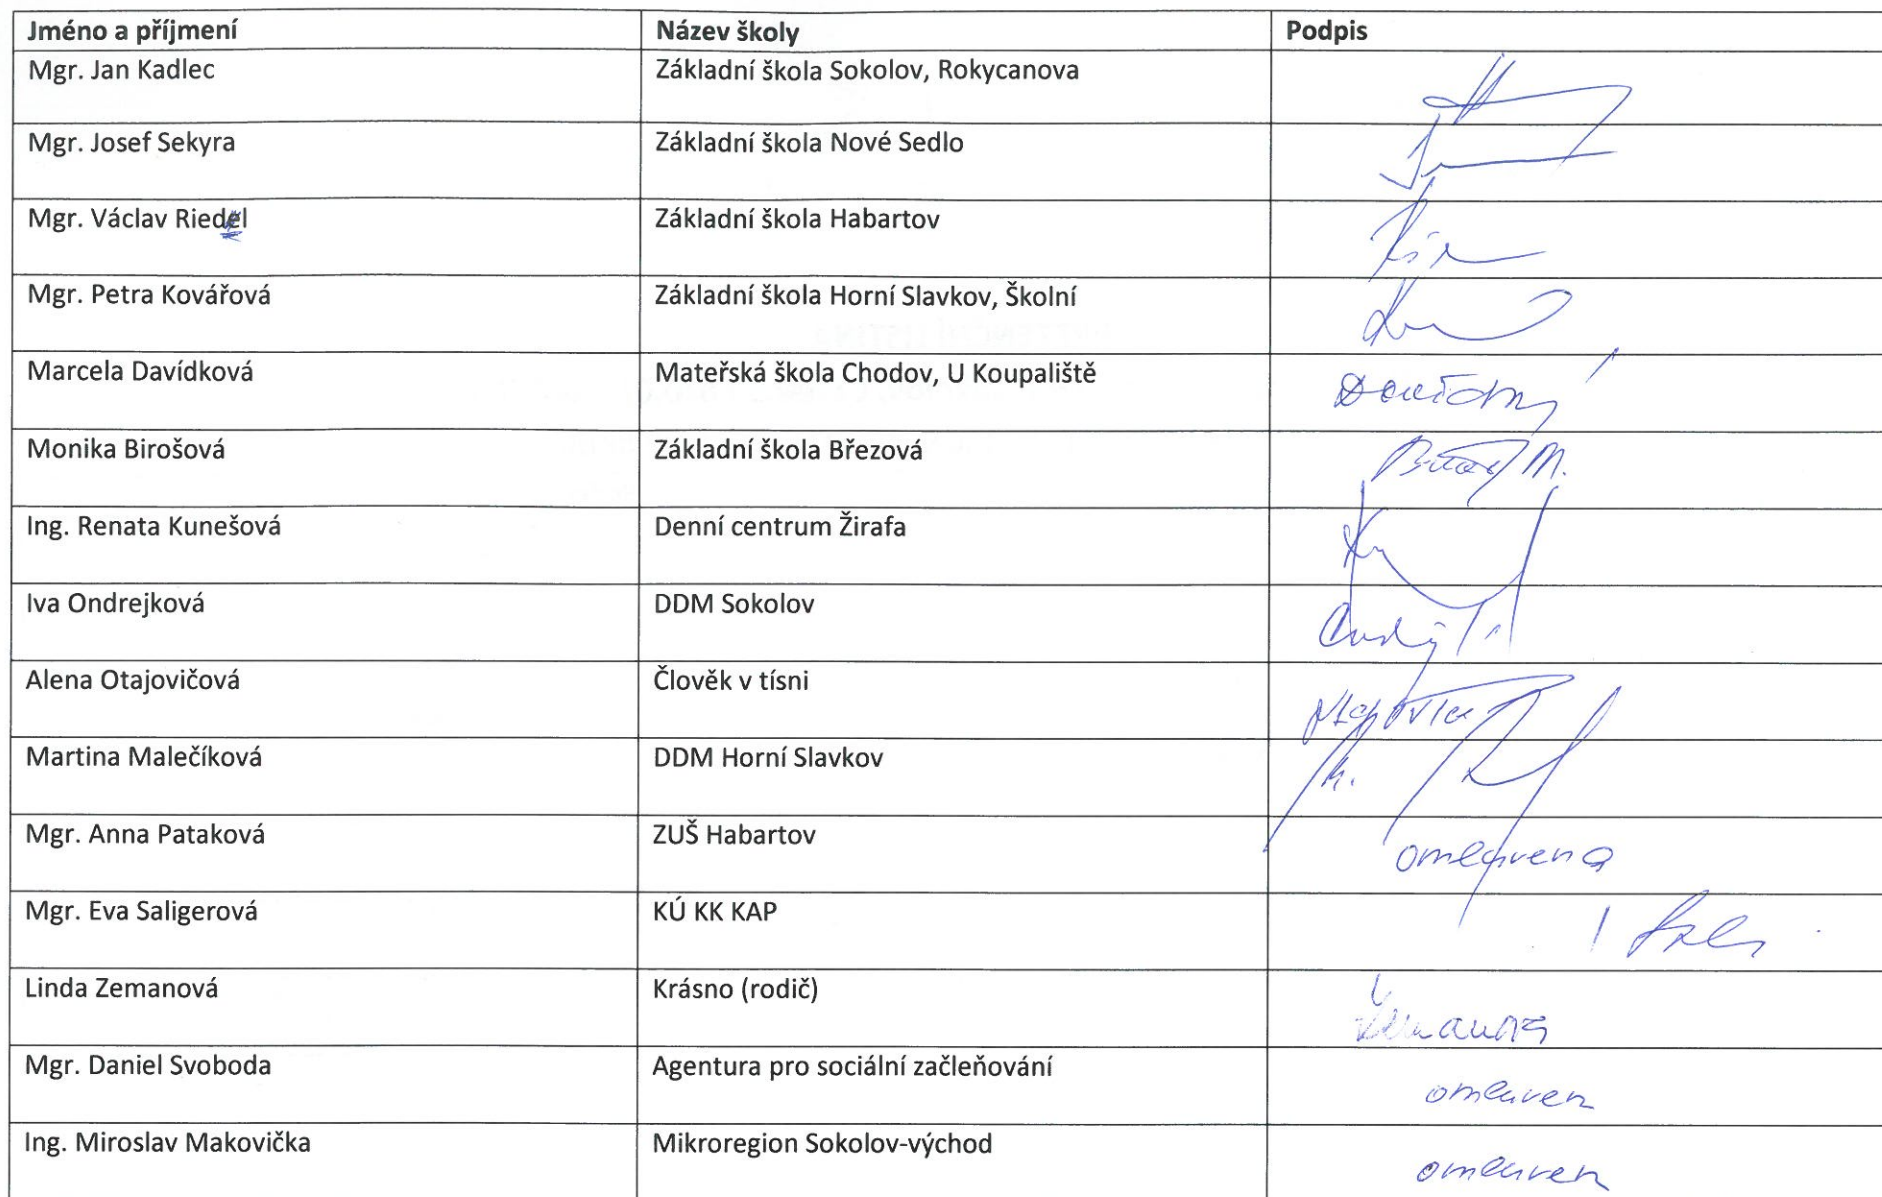 Jméno a příjmení Název školy Podpis
Mgr. Jan Kadlec Základní škola Sokolov, Rokycanova
Mgr. Josef Sekyra Základní škola Nové Sedlo
Mgr. Václav Riedel Základní škola Habartov
Mgr. Petra Kovářová Základní škola Horní Slavkov, Školní
Marcela Davídková Mateřská škola Chodov, U Koupaliště
Monika Birošová Základní škola Březová
Ing. Renata Kunešová Denní centrum Žirafa
Iva Ondrejková DDM Sokolov
Alena Otajovičová Člověk v tísni
Martina Malečíková DDM Horní Slavkov
Mgr. Anna Pataková ZUŠ Habartov omluvena
Mgr. Eva Saligerová KÚ KK KAP
Linda Zemanová Krásno (rodič) Zemanová
Mgr. Daniel Svoboda Agentura pro sociální začleňování omluven
Ing. Miroslav Makovička Mikroregion Sokolov-východ omluven